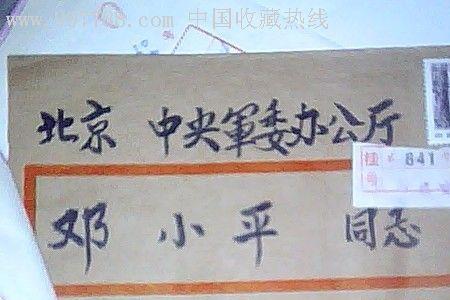 www.997788.com 中国收藏热线
北京 中央軍委办公厅
挂号 841
邓小平 同志